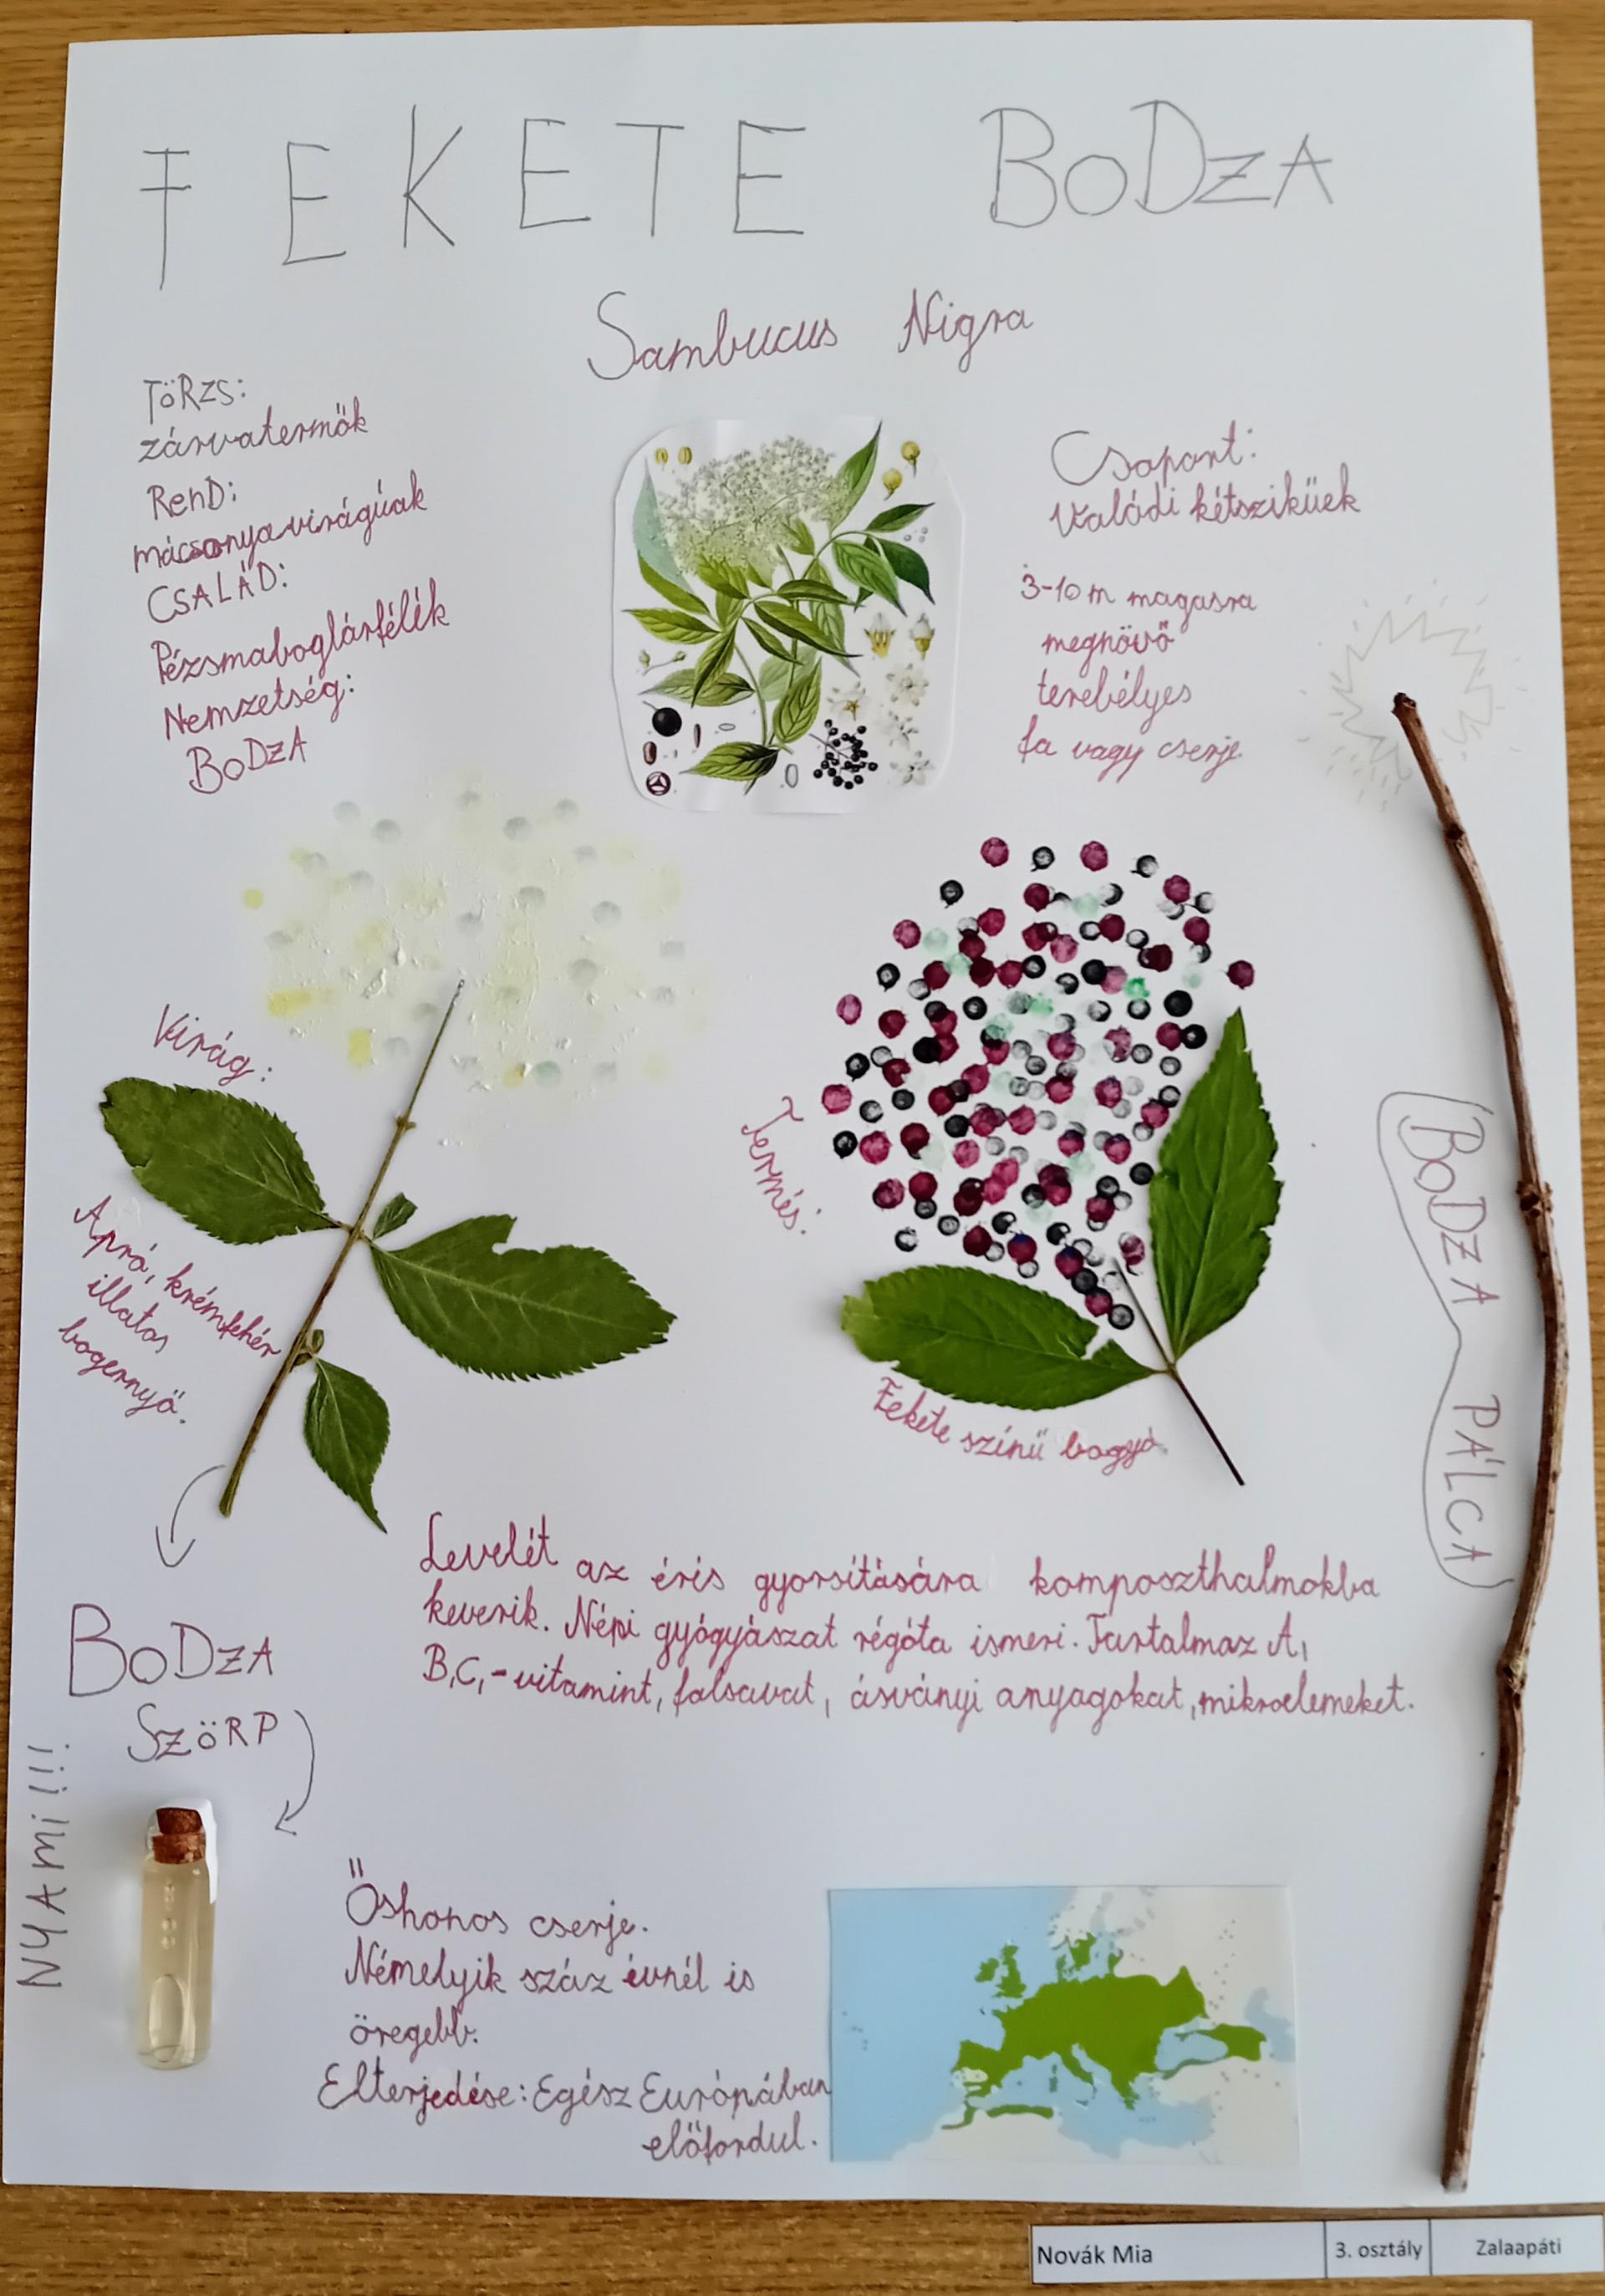 FEKETE BODZA
Sambucus Nigra
TÖRZS:
zárvatermők
REND:
mácsonyavirágúak
CSALÁD:
Pézsmaboglárfélék
Nemzetség:
BODZA
Csoport:
Valódi kétszikűek
3-10 m magasra
megnövő
terebélyes
fa vagy cserje
Virág:
Apró, krémfehér
illatos
bogernyő.
Termés:
Fekete színű bogyó
BODZA PÁLCA
Levelét az érés gyorsítására komposzthalmokba
keverik. Népi gyógyászat régóta ismeri. Tartalmaz A,
B,C,-vitamint, falsavat, ásványi anyagokat, mikroelemeket.
BODZA
SZÖRP
NYAMI!!!
Őshonos cserje.
Némelyik száz évnél is
öregebb.
Elterjedése: Egész Európában
előfordul.
Novák Mia 3. osztály Zalaapáti